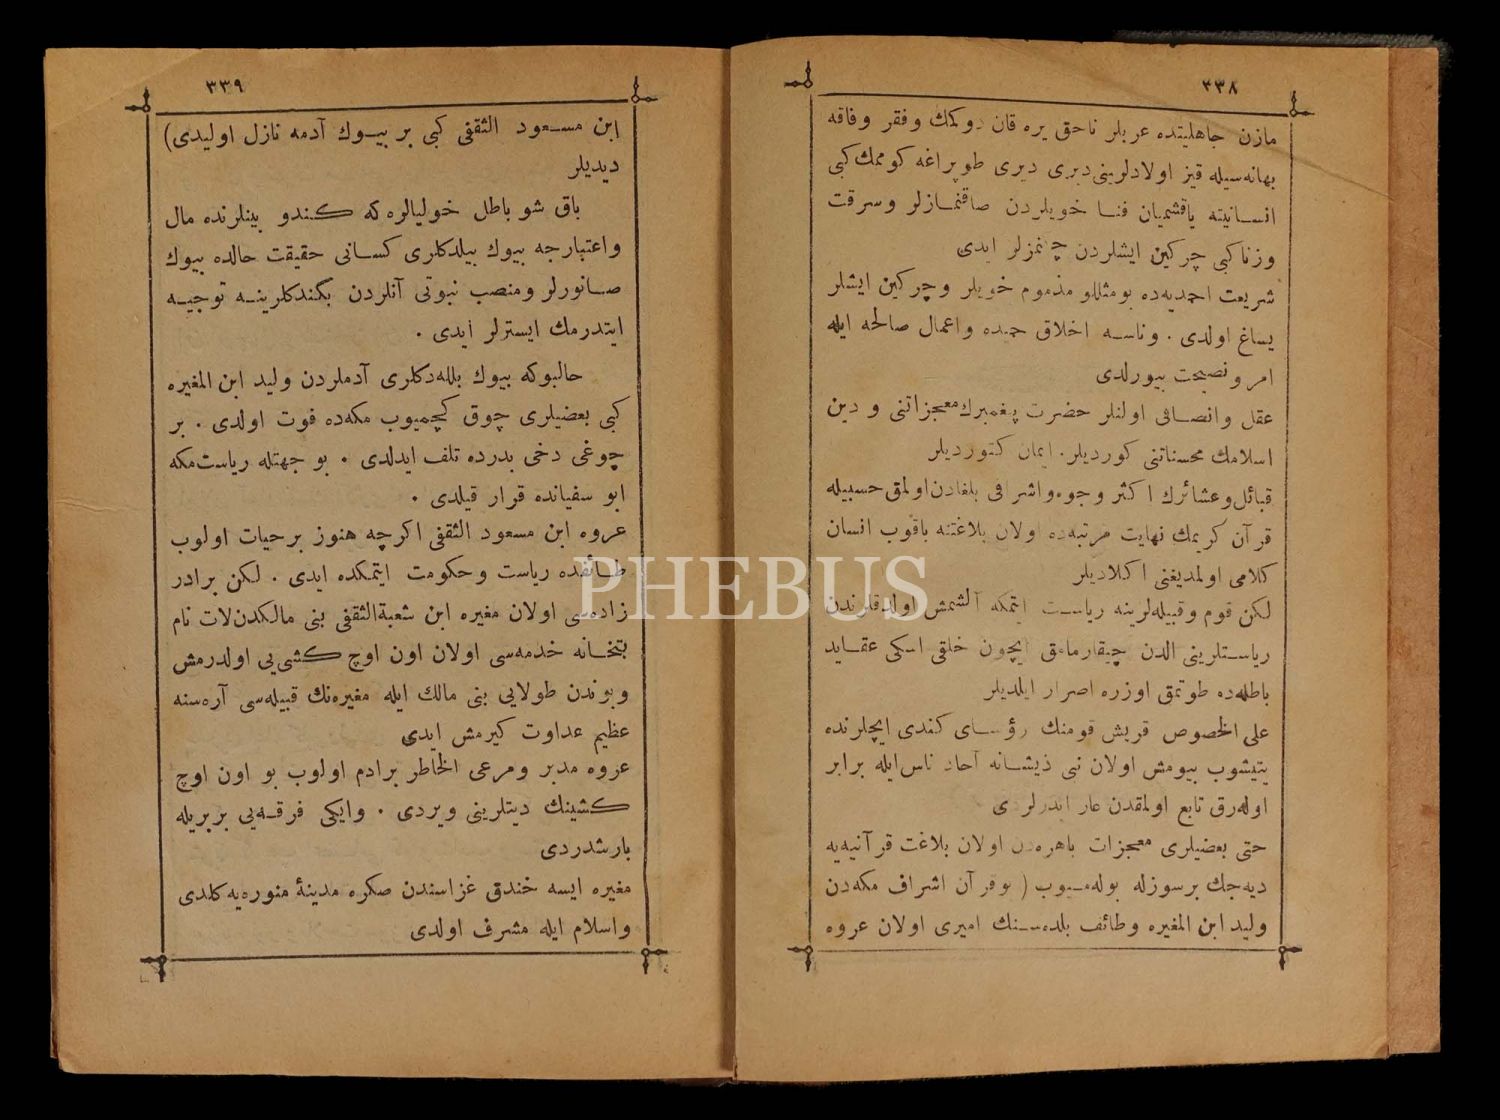 ٣٣٨
مازن جاهليتده عربلر ناحق يره قان دوكمك وفقر وفاقه
بهانه‌سيله قيز اولادلرينى ديرى ديرى طوپراغه كوممك كبى
انسانيته ياقشميان فنا خويلردن صاقنمازلر وسرقت
وزنا كبى چركين ايشلردن چكنمزلر ايدى
شريعت احمديه‌ده بومثللو مذموم خويلر وچركين ايشلر
يساغ اولدى . وناسه اخلاق حميده واعمال صالحه ايله
امر ونصيحت بيورلدى
عقل وانصافى اولنلر حضرت پيغمبرك معجزاتنى ودين
اسلامك محسناتنى كورديلر. ايمان كتورديلر
قبائل وعشائرك اكثر وجوه واشرافى بلغادن اولمق حسبيله
قرآن كريمك نهايت مرتبه‌ده اولان بلاغتنه باقوب انسان
كلامى اولمديغنى اكلاديلر
لكن قوم وقبيله‌لرينه رياست ايتمكه آلشمش اولدقلرندن
رياستلرينى الدن چيقارمامق ايچون خلقى اسكى عقايد
باطله‌ده طوتمق اوزره اصرار ايلديلر
على الخصوص قريش قومنك رؤساى كندى ايچلرنده
يتيشوب بيومش اولان نبى ذيشانه آحاد ناس ايله برابر
اوله‌رق تابع اولمقدن عار ايدرلردى
حتى بعضيلرى معجزات باهره‌دن اولان بلاغت قرآنيه‌يه
ديه‌جك برسوزله بوله‌ميوب ( بوقرآن اشراف مكه‌دن
وليد ابن المغيره وطائف بلده‌سنك اميرى اولان عروه
٣٣٩
ابن مسعود الثقفى كبى بر بيوك آدمه نازل اوليدى)
ديديلر
باق شو باطل خوليالره كه كندو بينلرنده مال
واعتبارجه بيوك بيلدكلرى كسانى حقيقت حالده بيوك
صانورلر ومنصب نبوتى آنلردن بكندكلرينه توجيه
ايتدرمك ايسترلر ايدى .
حالبوكه بيوك بللەدكلرى آدملردن وليد ابن المغيره
كبى بعضيلرى چوق كچميوب مكه‌ده فوت اولدى . بر
چوغى دخى بدرده تلف ايدلدى . بو جهتله رياست مكه
ابو سفيانده قرار قيلدى .
عروه ابن مسعود الثقفى اكرچه هنوز برحيات اولوب
طائفده رياست وحكومت ايتمكده ايدى . لكن برادر
زاده‌سى اولان مغيره ابن شعبةالثقفى بنى مالكدن لات نام
بتخانه خدمه‌سى اولان اون اوچ كشى‌يى اولدرمش
وبوندن طولايى بنى مالك ايله مغيره‌نك قبيله‌سى آره‌سنه
عظيم عداوت كيرمش ايدى
عروه مدبر ومرعى الخاطر برادم اولوب بو اون اوچ
كشينك ديتلرينى ويردى . وايكى فرقه‌يى بربريله
بارشدردى
مغيره ايسه خندق غزاسندن صكره مدينهٔ منوره‌يه كلدى
واسلام ايله مشرف اولدى
PHEBUS